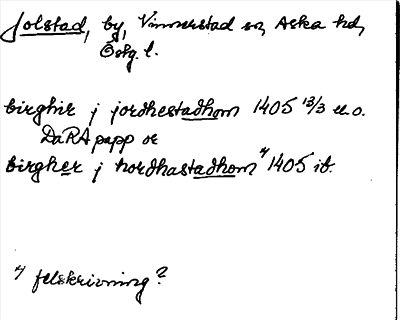 Jolstad, by, Vinnerstad sn, Aska hd,
Östg. l.
birghir j jordhestadhom 1405 13/3 u.o.
DaRA papp or
birgher j hordhastadhom x/ 1405 ib.
x/ felskrivning?